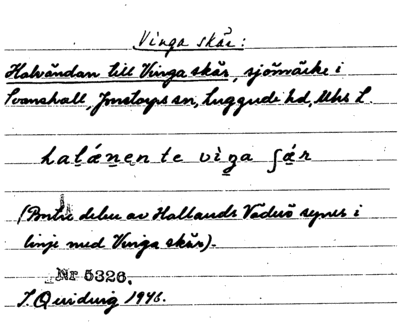 Vinga skär:
Halvändan till Vinga skär, sjömärke i
Svanshall, Jonstorps sn, Luggude hd, Mhs L.
halǽnen te viga ʃǽr
(Botre delen av Hallands Väderö synes i
linje med Vinga skär).
Nr 5326.
T. Quidwig 1946.